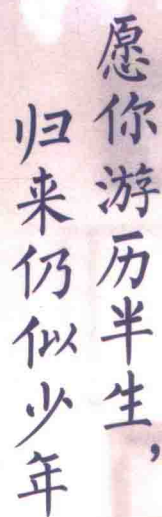 愿你游历半生，
归来仍似少年